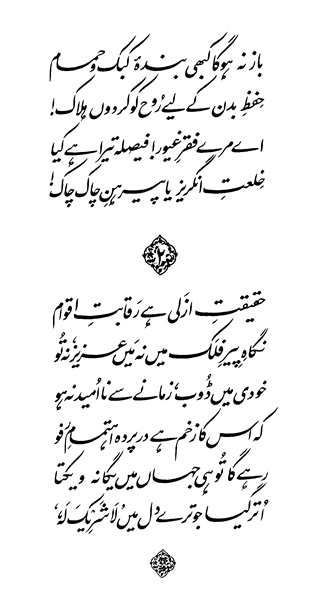 باز نہ ہوگا کبھی بندۂ کبک و حمام
حفظِ بدن کے لیے رُوح کو کردوں ہلاک!
اے مرے فقرِ غیور! فیصلہ تیرا ہے کیا
خِلعتِ انگریز یا پیرہنِ چاک چاک!
۲
حقیقتِ ازَلی ہے رَقابتِ اقوام
نگاہِ پیرِ فلک میں نہ مَیں عزیز، نہ تُو
خودی میں ڈُوب، زمانے سے نا اُمید نہ ہو
کہ اس کا زخم ہے درپردہ اہتمامِ رُفو
رہے گا تُو ہی جہاں میں یگانہ و یکتا
اُتر گیا جو ترے دل میں 'لَاشَرِیکَ لَہٗ'